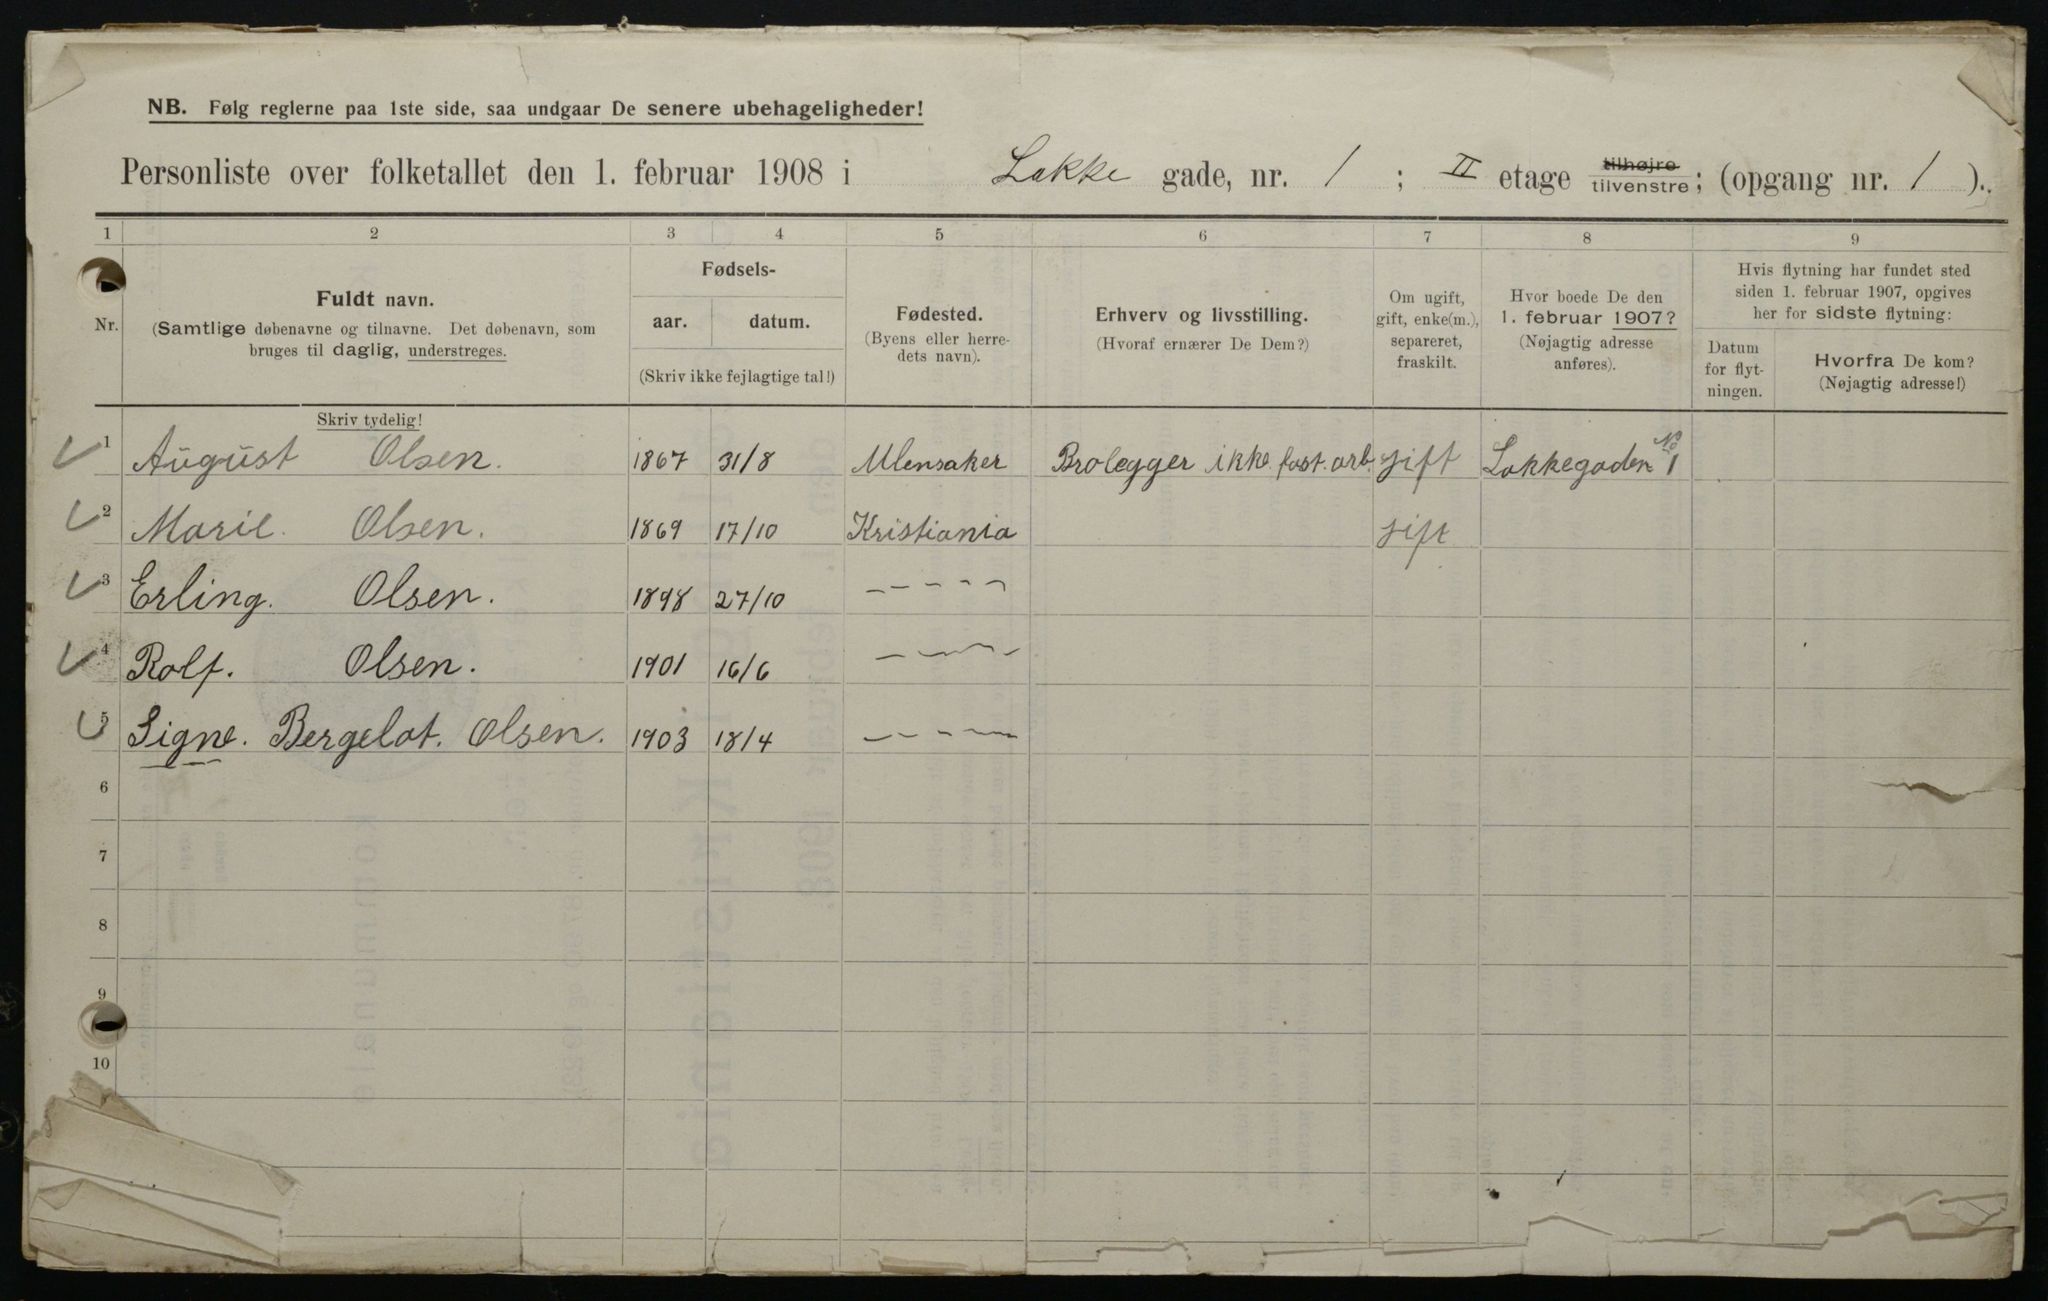 NB. Følg reglerne paa 1ste side, saa undgaar De senere ubehageligheder!
Personliste over folketallet den 1. februar 1908 i Lakke gade, nr. 1 ; II etage tilhøjre tilvenstre; (opgang nr. 1 ).
1 2 3 4 5 6 7 8 9
Nr.
Fuldt navn.
(Samtlige døbenavne og tilnavne. Det døbenavn, som
bruges til daglig, understreges.
Skriv tydelig!
Fødsels-
aar. datum.
(Skriv ikke fejlagtige tal!)
Fødested.
(Byens eller herre-
dets navn).
Erhverv og livsstilling.
(Hvoraf ernærer De Dem?)
Om ugift,
gift, enke(m.),
separeret,
fraskilt.
Hvor boede De den
1. februar 1907?
(Nøjagtig adresse
anføres).
Hvis flytning har fundet sted
siden 1. februar 1907, opgives
her for sidste flytning:
Datum
for flyt-
ningen.
Hvorfra De kom?
(Nøjagtig adresse!)
1 August Olsen. 1867 31/8 Ulensaker Brolegger ikke fast. arb. gift Lakkegaden No 1
2 Marie. Olsen. 1869 17/10 Kristiania gift
3 Erling. Olsen. 1898 27/10 – – – – –
4 Rolf. Olsen. 1901 16/6 – – – – –
5 Signe. Bergelot. Olsen. 1903 18/4 – – – – –
6
7
8
9
10